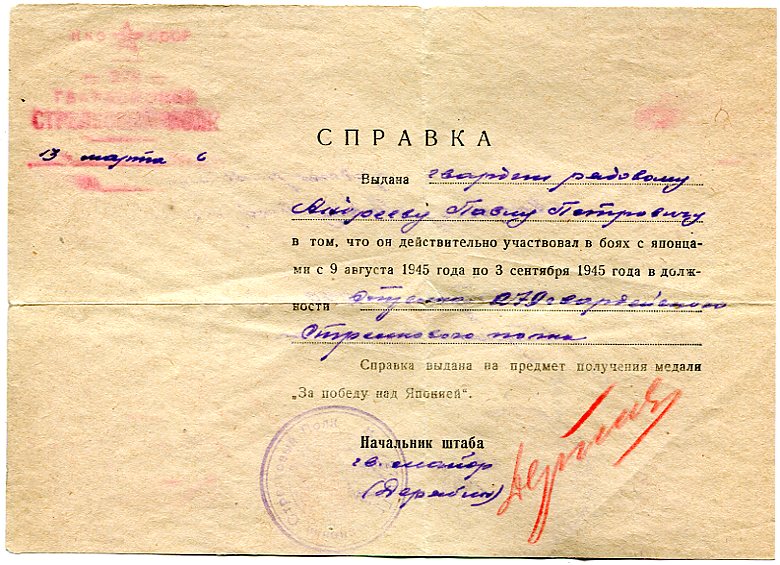 НКО СССР
279
ГВАРДЕЙСКИЙ
СТРЕЛКОВЫЙ ПОЛК
13 марта 6
СПРАВКА
Выдана гвардии рядовому
Андрееву Павлу Петровичу
в том, что он действительно участвовал в боях с японца-
ми с 9 августа 1945 года по 3 сентября 1945 года в долж-
ности Стрелка 279 гвардейского
Стрелкового полка
Справка выдана на предмет получения медали
„За победу над Японией".
Начальник штаба
гв. майор
(Дерябин)